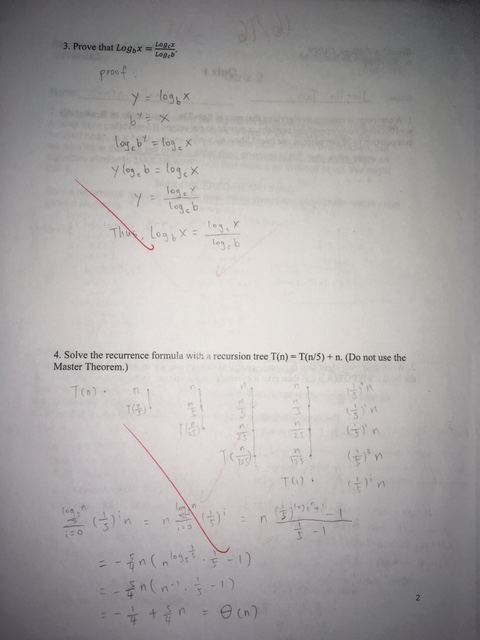 3. Prove that Log_b x = Log_c x / Log_c b.
proof:
y = log_b x
b^y = x
log_c b^y = log_c x
y log_c b = log_c x
y = log_c x / log_c b
Thus, Log_b x = log_c x / log_c b
4. Solve the recurrence formula with a recursion tree T(n) = T(n/5) + n. (Do not use the
Master Theorem.)
T(n) = n n n n
T(n/5) n/5 n/5 n/5 (1/5) n
n/25 n/25
n/125
T(1)
(1/5)^i n
∑_{i=0}^{log_5 n} (1/5)^i n = n ∑_{i=0}^{log_5 n} (1/5)^i = n ((1/5)^{log_5 n + 1} - 1) / (1/5 - 1)
= - 5/4 n (n^{log_5 1/5} · 1/5 - 1)
= - 5/4 n (n^{-1} · 1/5 - 1)
= - 1/4 + 5/4 n = Θ(n)
2